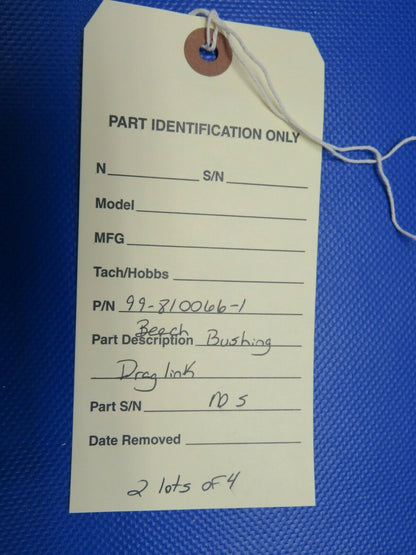 PART IDENTIFICATION ONLY
N S/N
Model
MFG
Tach/Hobbs
P/N 99-810066-1
Beech
Part Description Bushing
Drag link
Part S/N NS
Date Removed
2 lots of 4